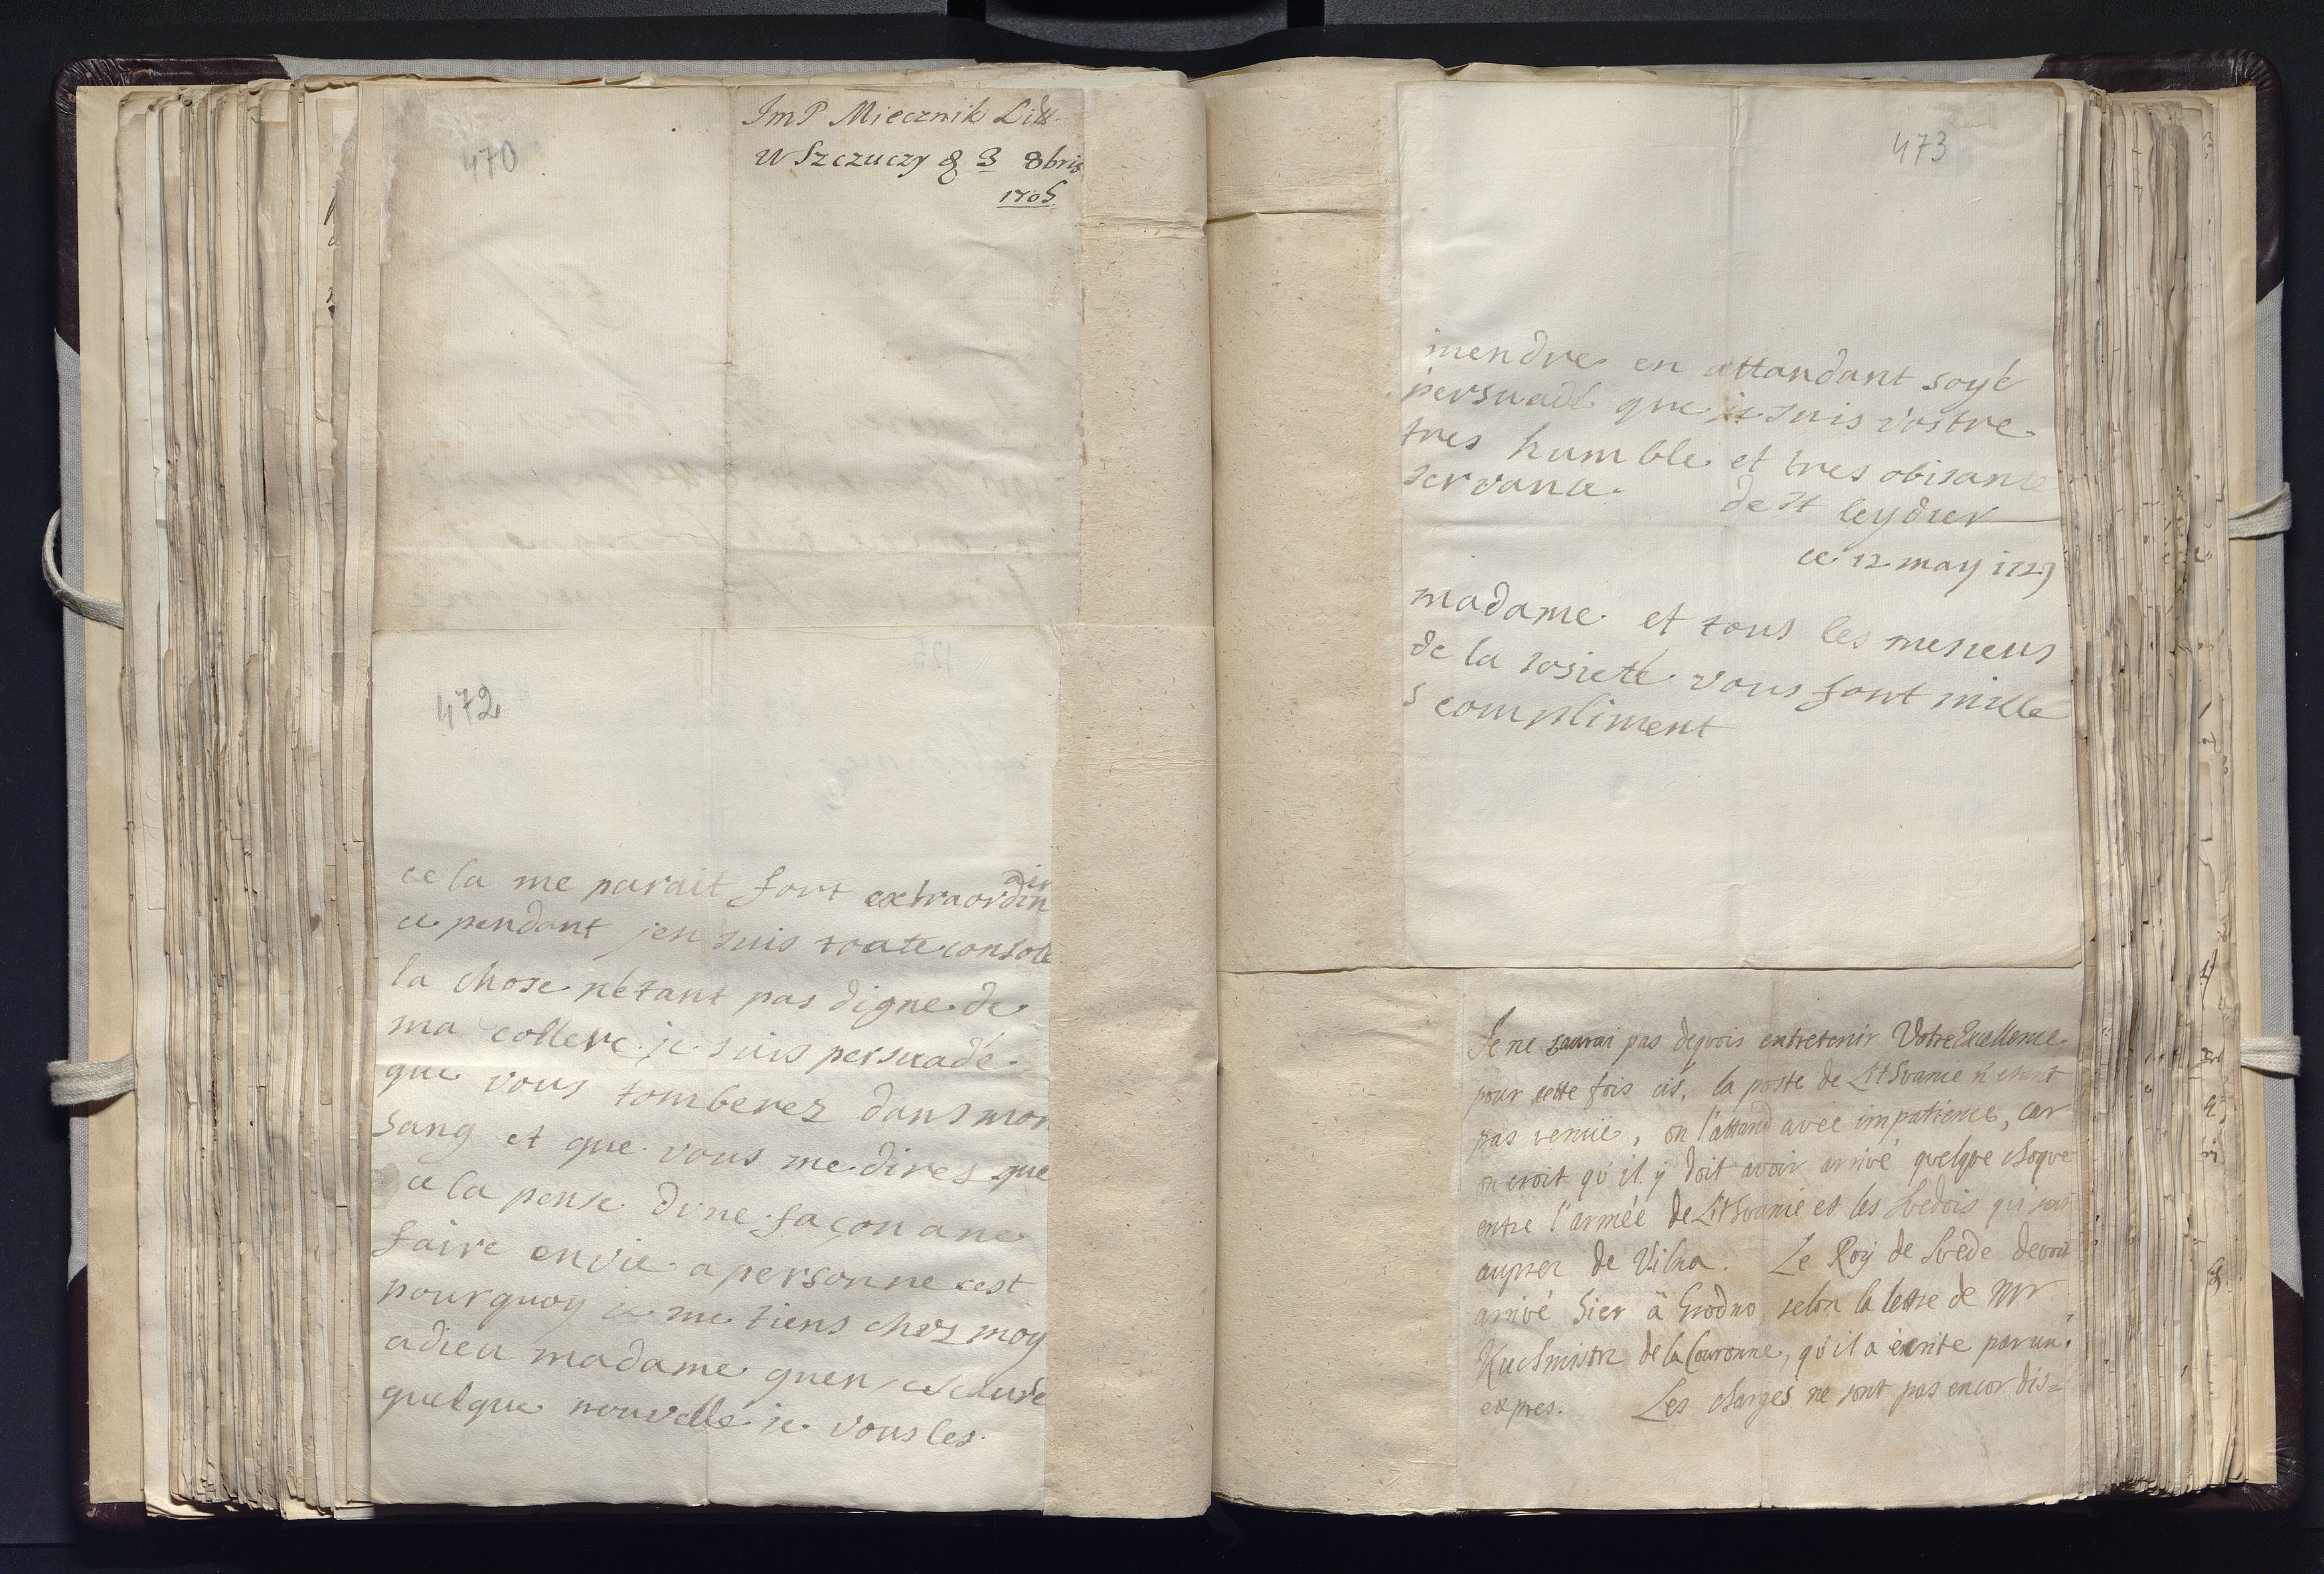 470
JmP Miecznik Litt.
W Szczuczy & 3 8bris
1705.
472
ce la me parait fort extraordin
air
ce pendant jen suis toute console
la chose nétant pas digne de
ma collere je suis persuadé
que vous tomberez dans mon
sang et que vous me dires que
ce la pense dune façon ane
faire envie a personne cest
pourquoy je me tiens chez moy
adieu madame quen
quelque nouvelle je vous les
473
mendre en attandant soyé
persuadé que je suis vostre
tres humble et tres obisante
servance. de St leydier
ce 12 may 1723
madame et tous les mesieus
de la sosieté vous font mille
s compliment
Je ne saurai pas dequoi entretenir Votre Excellence
pour cette fois cis, la poste de Lithvanie n'etant
pas venüe, on l'attend avec impatience, car
on croit qu'il y doit avoir arrivé quelque choque
entre l'armée de Lithvanie et les Svedois qui sont
aupres de Vilna. Le Roy de Svede devoit
arrivé hier à Grodno, selon la lettre de Mr
Kuchmistr de la Couronne, qu'il a écrite par un
expres. Les charges ne sont pas encor dis=